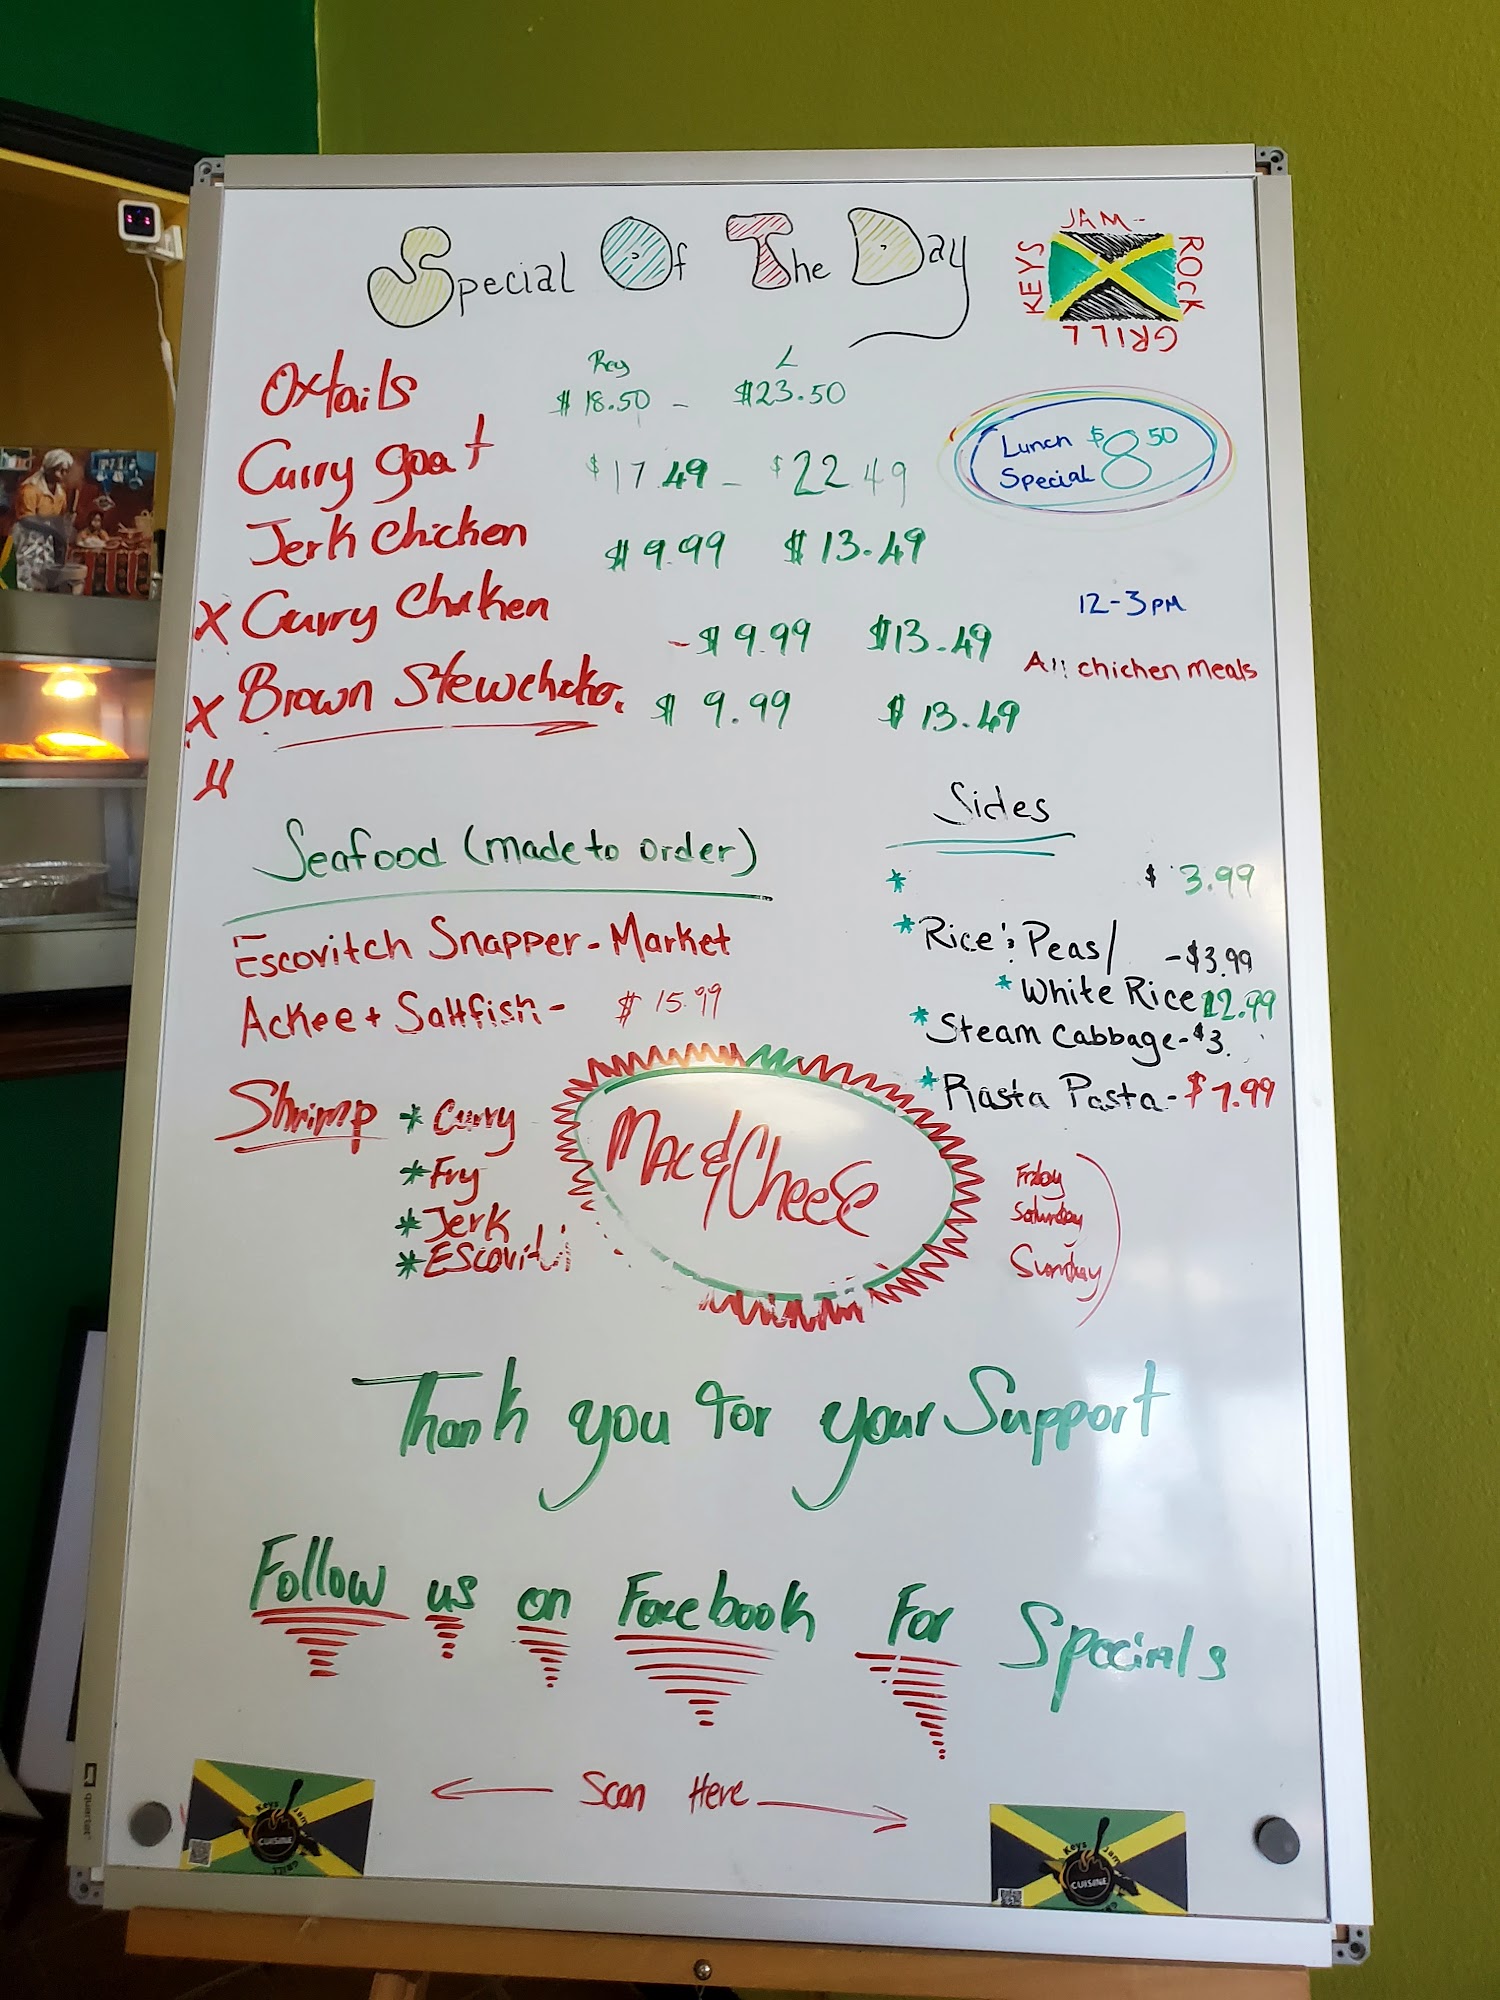 Special Of The Day
KEYS JAM- ROCK GRILL
Reg L
Oxtails $18.50 - $23.50
Curry goat $17.49 - $22.49
Lunch Special $8.50
Jerk Chicken $9.99 $13.49
12-3PM
X Curry Chicken -$9.99 $13.49
All chichen meals
X Brown Stew $9.99 $13.49
Sides
Seafood (made to order)
* $3.99
Escovitch Snapper - Market
* Rice & Peas/ -$3.99
* White Rice
Ackee + Saltfish - $15.99
* Steam Cabbage - $3.
* Rasta Pasta - $7.99
Shrimp * Curry
* Fry
* Jerk
Mac & Cheese
Friday
Saturday
Sunday
Thank you for your Support
Follow us on Facebook For Specials
Scan Here
Keys Jam
CUISINE
Keys Jam
CUISINE